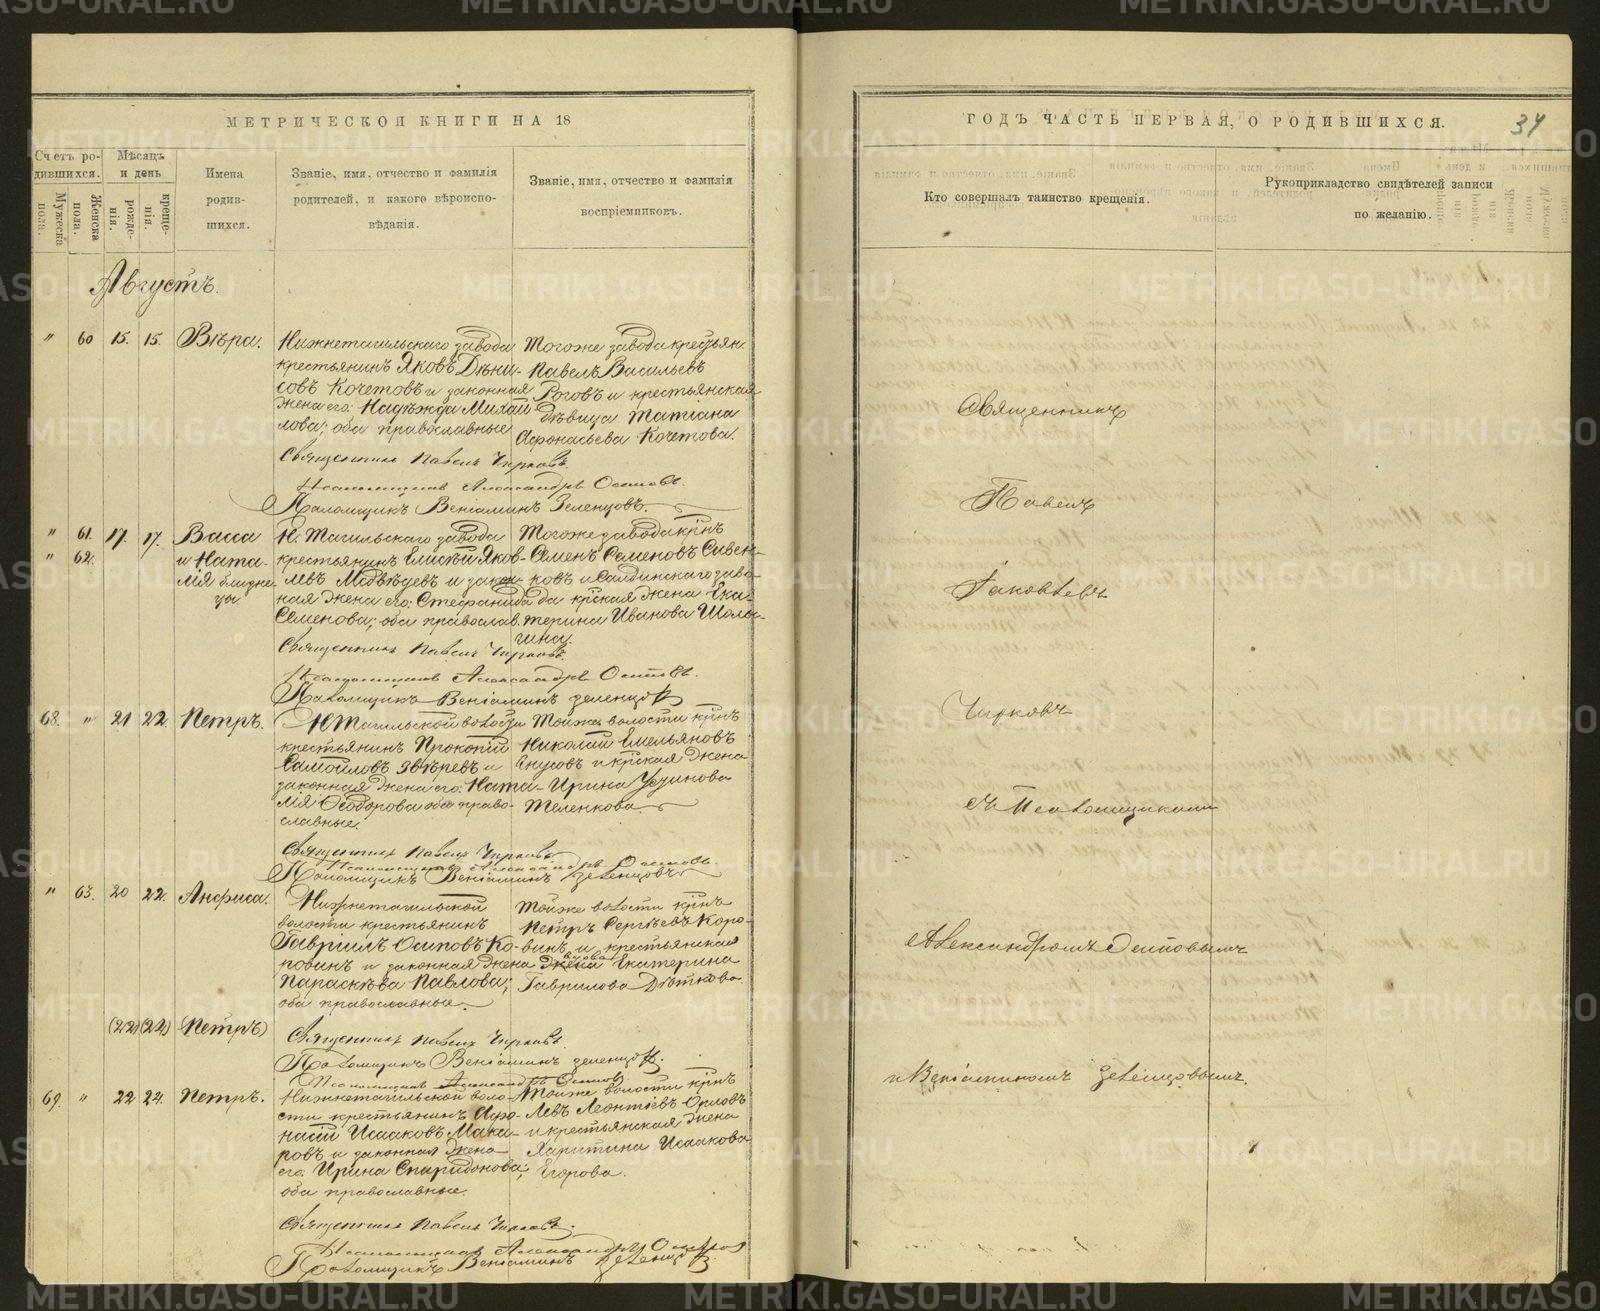 МЕТРИЧЕСКОЙ КНИГИ НА 18
Счетъ родившихся.
Мужеска пола.
Женска пола.
Мѣсяцъ и день
рожденія.
крещенія.
Имена родившихся.
Званіе, имя, отчество и фамилія
родителей, и какого вѣроиспо-
вѣданія.
Званіе, имя, отчество и фамилія
воспріемниковъ.
Августъ.
" 60 15. 15. Вѣра.
Нижнетагильскаго завода
крестьянинъ Яковъ Дени-
совъ Кочетовъ и законная
жена его: Надежда Михай
лова; оба православные
Тогоже завода крестьян.
Павелъ Васильевъ
Роговъ и крестьянская
дѣвица Татіана
Афонасьева Кочетова.
Священникъ Павелъ Чирковъ.
Псаломщикъ Александръ Осиповъ.
Псаломщикъ Веніаминъ Зеленцовъ.
" 61. 17. 17. Васса
" 62. и Ната-
лія близне-
цы
Н. Тагильскаго завода
крестьянинъ Елисѣй Яков-
левъ Медвѣдевъ и закон-
ная жена его: Стефанида
Семенова; оба православ.
Тогоже завода кр҃інъ
Семенъ Семеновъ Сивен-
ковъ и Салдинскаго заво-
да кр҃ская жена Ека-
терина Иванова Шолы-
гина.
Священникъ Павелъ Чирковъ.
Псаломщикъ Александръ Осиповъ.
Псаломщикъ Веніаминъ Зеленцовъ
68. " 21 22. Петръ.
НТагильской волости
крестьянинъ Прокопій
Самойловъ Звѣревъ и
законная жена его: Ната-
лія Ѳеодорова оба право-
славные.
Тойже волости кр҃інъ
Николай Емельяновъ
Енусовъ и кр҃ская жена
Ирина
Теленкова
Священникъ Павелъ Чирковъ
Псаломщикъ Александръ Осиповъ.
Псаломщикъ Веніаминъ Зеленцовъ
" 63. 20 22. Анфиса.
Нижнетагильской
волости крестьянинъ
Гавріилъ Осиповъ Ко-
ровинъ и законная жена
Параскева Павлова;
оба православные.
Тойже волости кр҃інъ
Петръ Сергѣевъ Коро-
винъ и крестьянская
вдова
жена Екатерина
Гаврилова Дѣткова
(22) (24) (Петръ)
Священникъ Павелъ Чирковъ.
Псаломщикъ Веніаминъ Зеленцовъ.
Псаломщикъ Александръ Осиповъ
69. " 22 24. Петръ.
Нижнетагильской воло-
сти крестьянинъ Афо-
насій Исааковъ Мака-
ровъ и законная жена
его: Ирина Спиридонова;
оба православные.
Тойже волости кр҃інъ
Левъ Леонтіевъ Орловъ
и крестьянская жена
Харитина Исаакова
Егорова.
Священникъ Павелъ Чирковъ.
Псаломщикъ Александръ Осиповъ
Псаломщикъ Веніаминъ Зеленцовъ.
ГОДЪ ЧАСТЬ ПЕРВАЯ, О РОДИВШИХСЯ.
34
Кто совершалъ таинство крещенія.
Рукоприкладство свидѣтелей записи
по желанію.
Священникъ
Павелъ
Іаковлевъ
Чирковъ
съ Псаломщиками
Александромъ Осиповымъ
и Веніаминомъ Зеленцовымъ.
METRIKI.GASO-URAL.RU